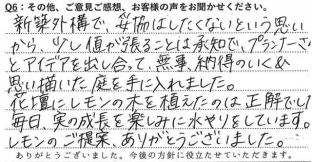 Q6：その他、ご意見ご感想、お客様の声をお聞かせください。
新築外構で、妥協はしたくないという思い
から、少し値が張ることは承知で、プランナーさ
とアイデアを出し合って、無事、納得のいく&
思い描いた庭を手に入れました。
花壇にレモンの木を植えたのは正解でし
毎日、実の成長を楽しみに水やりをしています。
レモンのご提案、ありがとうございました。
ありがとうございました。今後の方針に役立たせていただきます。